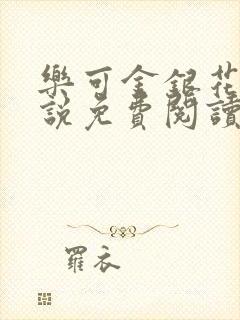 樂可金銀花
說免費閱讀
羅衣